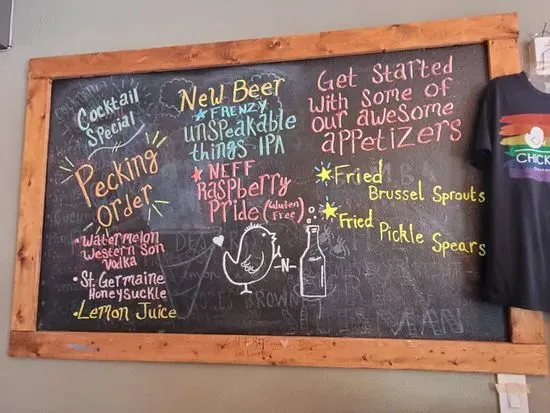 Cocktail
Special
Pecking
Order
• Watermelon
Western Son
Vodka
• St. Germaine
Honeysuckle
• Lemon Juice
New Beer
FRENZY
unspeakable
things IPA
NEFF
Raspberry
Pride (Gluten
Free)
-N-
Get Started
With Some of
Our awesome
appetizers
Fried
Brussel Sprouts
Fried Pickle Spears
CHICK